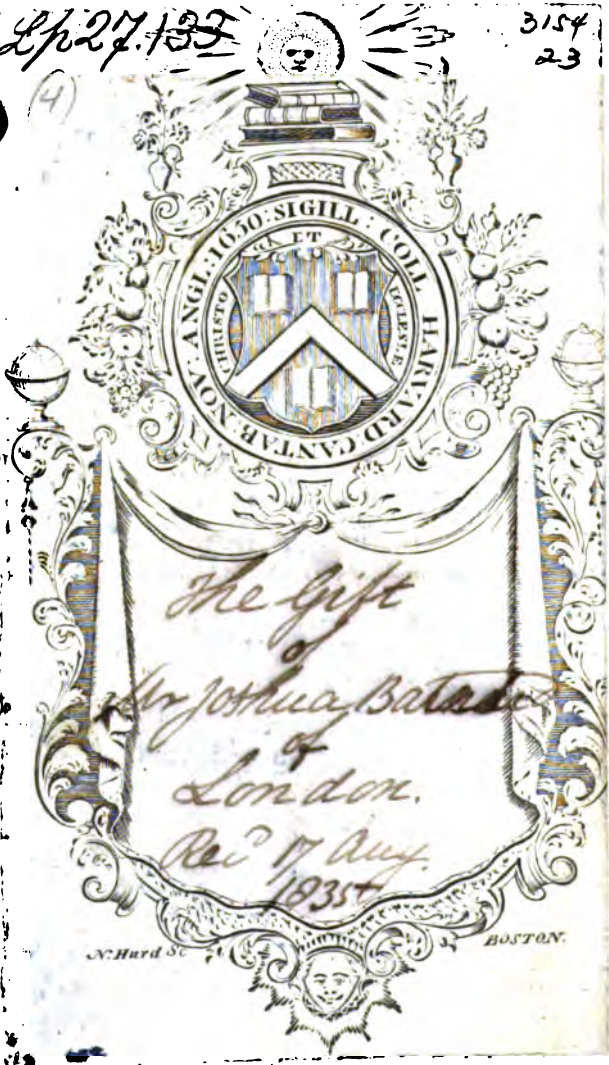 Lp27.133
3154
23
(4)
SIGILL : COLL HARVARD CANTAB. NOV. ANGL. 1650:
ET
CHRISTO
ECCLESIÆ
The Gift
of
Mr Joshua
of
London.
Rec'd 17 Aug.
1835
N. Hurd Sc
BOSTON.